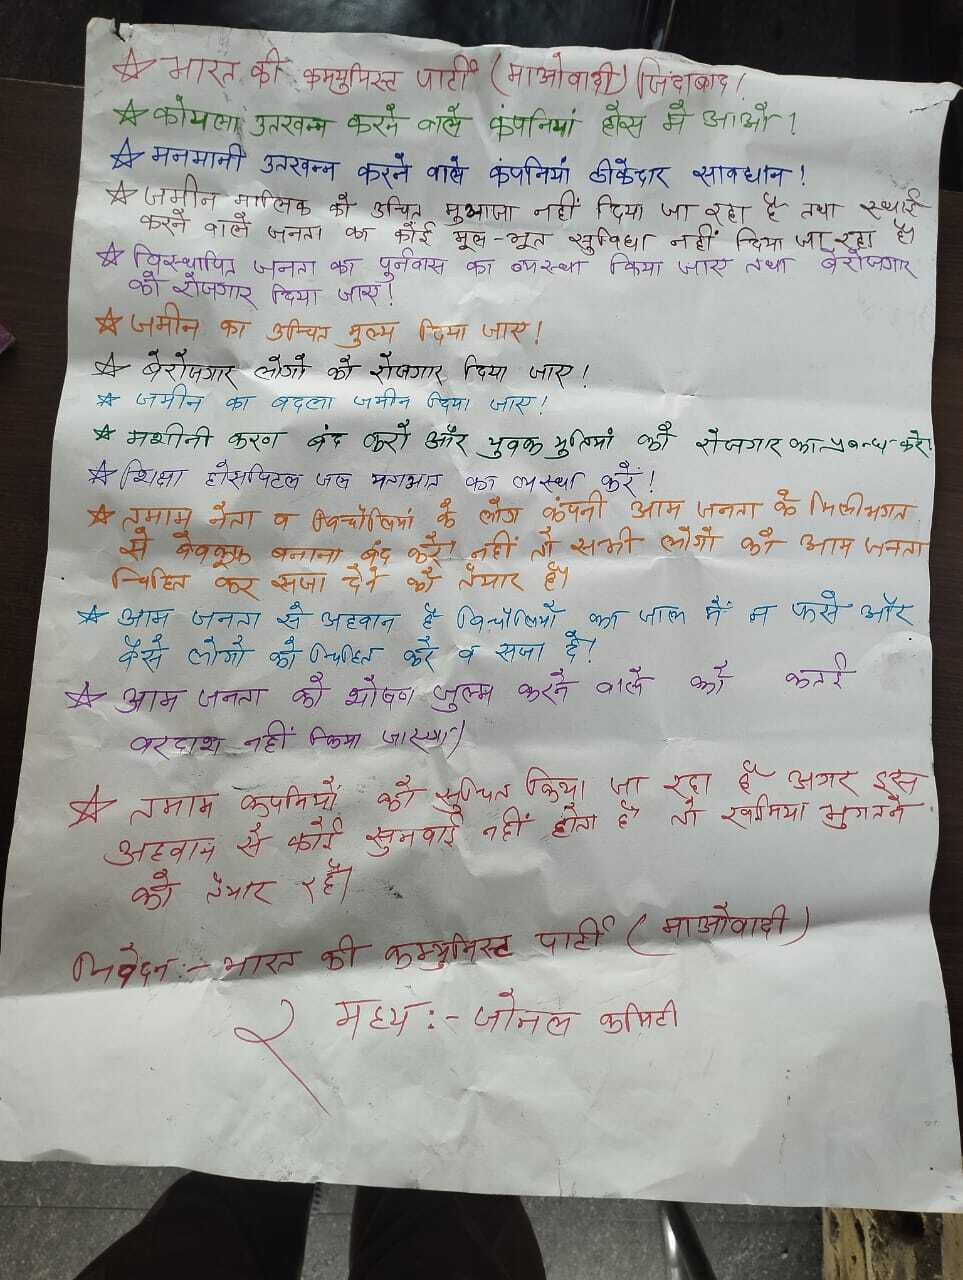 ☆ भारत की कम्युनिस्ट पार्टी (माओवादी) जिंदाबाद!
☆ कोयला उतखन्न करने वाले कंपनियां होस मे आओ!
☆ मनमानी उतखन्न करने वाले कंपनियां ठीकेदार सावधान!
☆ जमीन मालिक को उचित मुआजा नहीं दिया जा रहा है तथा स्थाई
करने वाले जनता का कोई मूल-भूत सुविधा नहीं दिया जा रहा है।
☆ विस्थापित जनता का पुर्नवास का व्यस्था किया जाए तथा बेरोजगार
को रोजगार दिया जाए!
☆ जमीन का उचित मुल्य दिया जाए!
☆ बेरोजगार लोगों को रोजगार दिया जाए!
☆ जमीन का बदला जमीन दिया जाए!
☆ मशीनी करण बंद करो और युवक युतियां को रोजगार का प्रबन्ध करे!
☆ शिक्षा होसपिटल जल का व्यस्था करें!
☆ तमाम नेता व विचौलियां के लोग कंपनी आम जनता के मिलीभगत
से बेवकूफ बनाना बंद करे। नहीं तो सभी लोगों को आम जनता
चिहित कर सजा देने को तैयार है।
☆ आम जनता से अहवान है विचौलियों का जाल में न फसे और
वैसे लोगो को चिहित करे व सजा दे!
☆ आम जनता को शोषण जुल्म करने वाले को कतई
वरदाश नहीं किया जाएगा)
☆ तमाम कंपनियों को सुचित किया जा रहा है अगर इस
अहवान से कोई सुनवाई नहीं होता है तो खमिया भुगतने
को तैयार रहें।
निवेदन :- भारत की कम्युनिस्ट पार्टी (माओवादी)
मध्य :- जोनल कमिटी